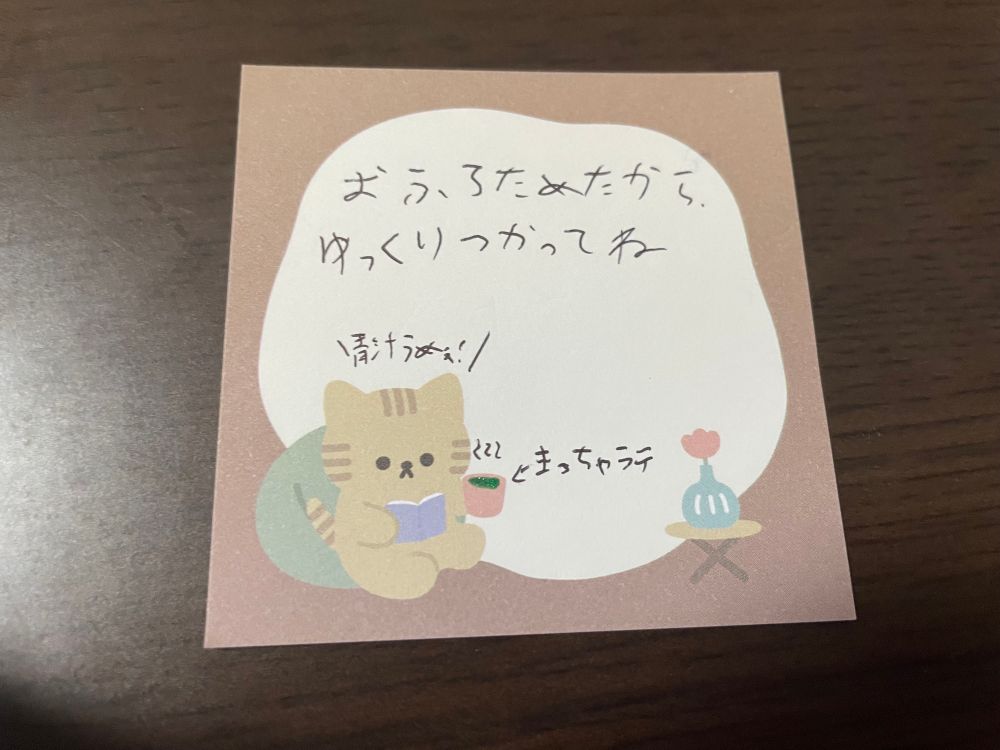 おふろためたから、
ゆっくりつかってね
\青汁うめぇ!/
←まっちゃラテ